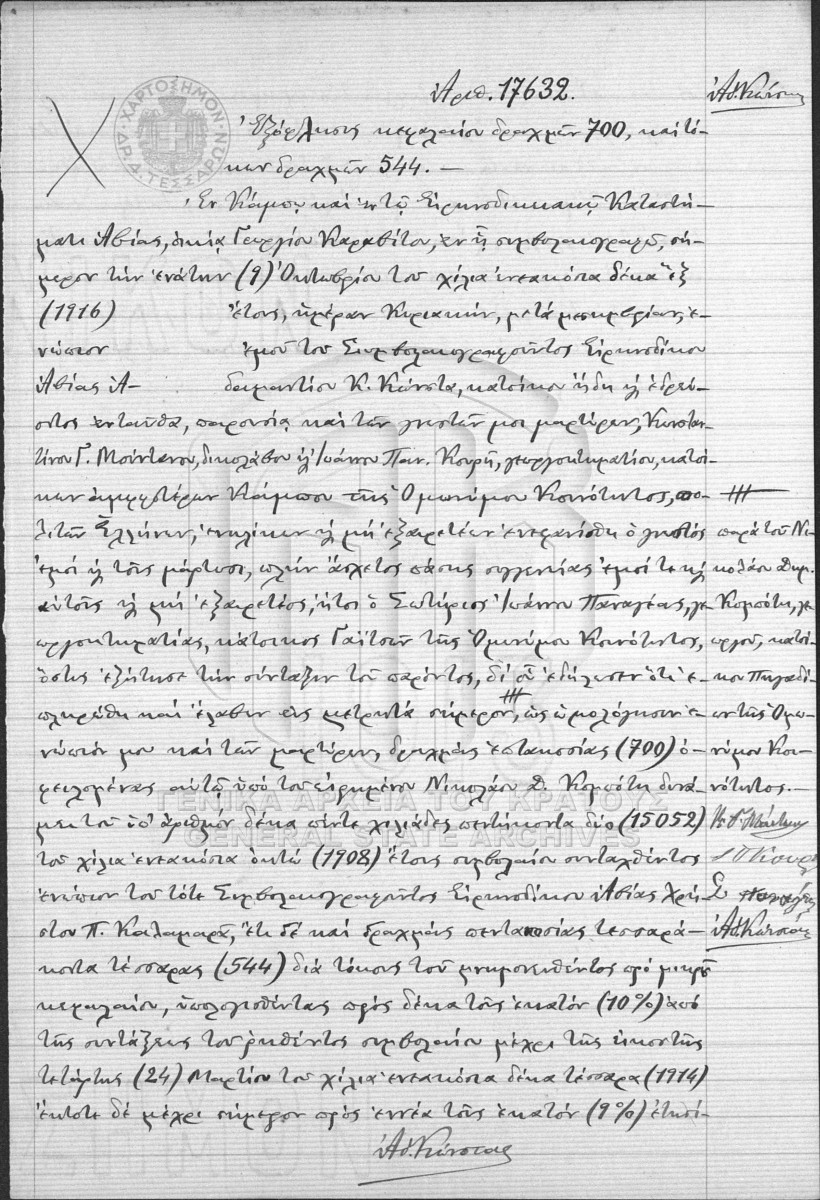 Ἀριθ. 17632.
Ἀδ. Κώνστας
ΧΑΡΤΟΣΗΜΟΝ
ΔΡ. Δ. ΤΕΣΣΑΡΩΝ
Ἐξόφλησις κεφαλαίου δραχμῶν 700, καὶ τό-
κων δραχμῶν 544. —
Ἐν Κάμπῳ καὶ ἐν τῷ Εἰρηνοδικειακῷ Καταστή-
ματι Ἀβίας, οἰκίᾳ Γεωργίου Καραβίτου, ἐν ᾗ συμβολαιογραφῶ, σή-
μερον τὴν ἐνάτην (9) Ὀκτωβρίου τοῦ χίλια ἐννεακόσια δέκα ἓξ
(1916) ἔτους, ἡμέραν Κυριακήν, μετὰ μεσημβρίαν, ἐ-
νώπιον ἐμοῦ τοῦ Συμβολαιογραφοῦντος Εἰρηνοδίκου
Ἀβίας Ἀ- δαμαντίου Κ. Κώνστα, κατοίκου ἤδη καὶ ἑδρεύ-
οντος ἐνταῦθα, παρουσίᾳ καὶ τῶν γνωστῶν μοι μαρτύρων, Κωνσταν-
τίνου Γ. δικολάβου καὶ Ἰωάννου Παν. Κουρῆ, γεωργοκτηματίου, κατοί-
κων ἀμφοτέρων Κάμπου τῆς Ὁμωνύμου Κοινότητος, πο-
λιτῶν Ἑλλήνων, ἐνηλίκων καὶ μὴ ἐξαιρετέων ἐνεφανίσθη ὁ γνωστὸς
ἐμοὶ καὶ τοῖς μάρτυσι, πλὴν ἄσχετος πάσης συγγενείας ἐμοί τε καὶ
αὐτοῖς καὶ μὴ ἐξαιρετέος, ἤτοι ὁ Σωτήριος Ἰωάννου Παναγέας, γε-
ωργοκτηματίας, κάτοικος Γαϊτσῶν τῆς Ὁμωνύμου Κοινότητος,
ὅστις ἐξῄτησε τὴν σύνταξιν τοῦ παρόντος, δι' οὗ ἐδήλωσεν ὅτι ἐ-
πληρώθη καὶ ἔλαβεν εἰς μετρητὰ σήμερον, ὡς ὡμολόγησεν ἐ-
νώπιόν μου καὶ τῶν μαρτύρων, δραχμὰς ἑπτακοσίας (700) ὀ-
φειλομένας αὐτῷ ὑπὸ τοῦ εἰρημένου Νικολάου Δ. Κομπότη δυνά-
μει τοῦ ὑπ' ἀριθμὸν δέκα πέντε χιλιάδες πεντήκοντα δύο (15052)
τοῦ χίλια ἐννεακόσια ὀκτὼ (1908) ἔτους συμβολαίου συνταχθέντος
ἐνώπιον τοῦ τότε Συμβολαιογραφοῦντος Εἰρηνοδίκου Ἀβίας Χρή-
στου Π. Καλαμαρᾶ, ἔτι δὲ καὶ δραχμὰς πεντακοσίας τεσσαρά-
κοντα τέσσαρας (544) διὰ τόκους τοῦ μνημονευθέντος πρὸ μικροῦ
κεφαλαίου, ὑπολογισθέντας πρὸς δέκα τοῖς ἑκατὸν (10%) ἀπὸ
τῆς συντάξεως τοῦ ῥηθέντος συμβολαίου μέχρι τῆς εἰκοστῆς
τετάρτης (24) Μαρτίου τοῦ χίλια ἐννεακόσια δέκα τέσσαρα (1914)
ἔκτοτε δὲ μέχρι σήμερον πρὸς ἐννέα τοῖς ἑκατὸν (9%) ἐτησί-
Ἀδ. Κώνστας
παρὰ τοῦ Νι-
κολάου Δημ.
Κομπότη, γε-
ωργοῦ, κατοί-
κου Πηγαδί-
ων τῆς Ὁμω-
νύμου Κοι-
νότητος. —
Ἀδ. Κώνστας
ΓΕΝΙΚΑ ΑΡΧΕΙΑ ΤΟΥ ΚΡΑΤΟΥΣ
GENERAL STATE ARCHIVES